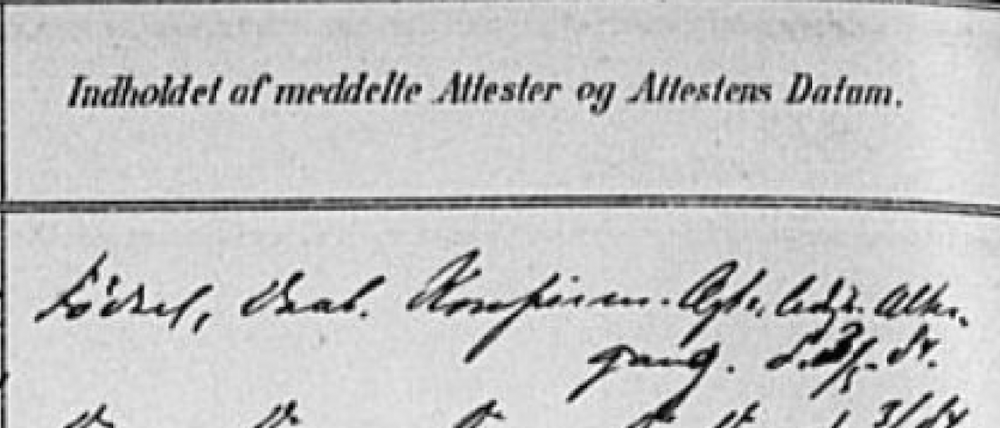 Indholdet af meddelte Attester og Attestens Datum.
Födsel, Daab. Konfirm. Ægt. ledig. Alter-
gang. d. 3/5. 84.
3/84